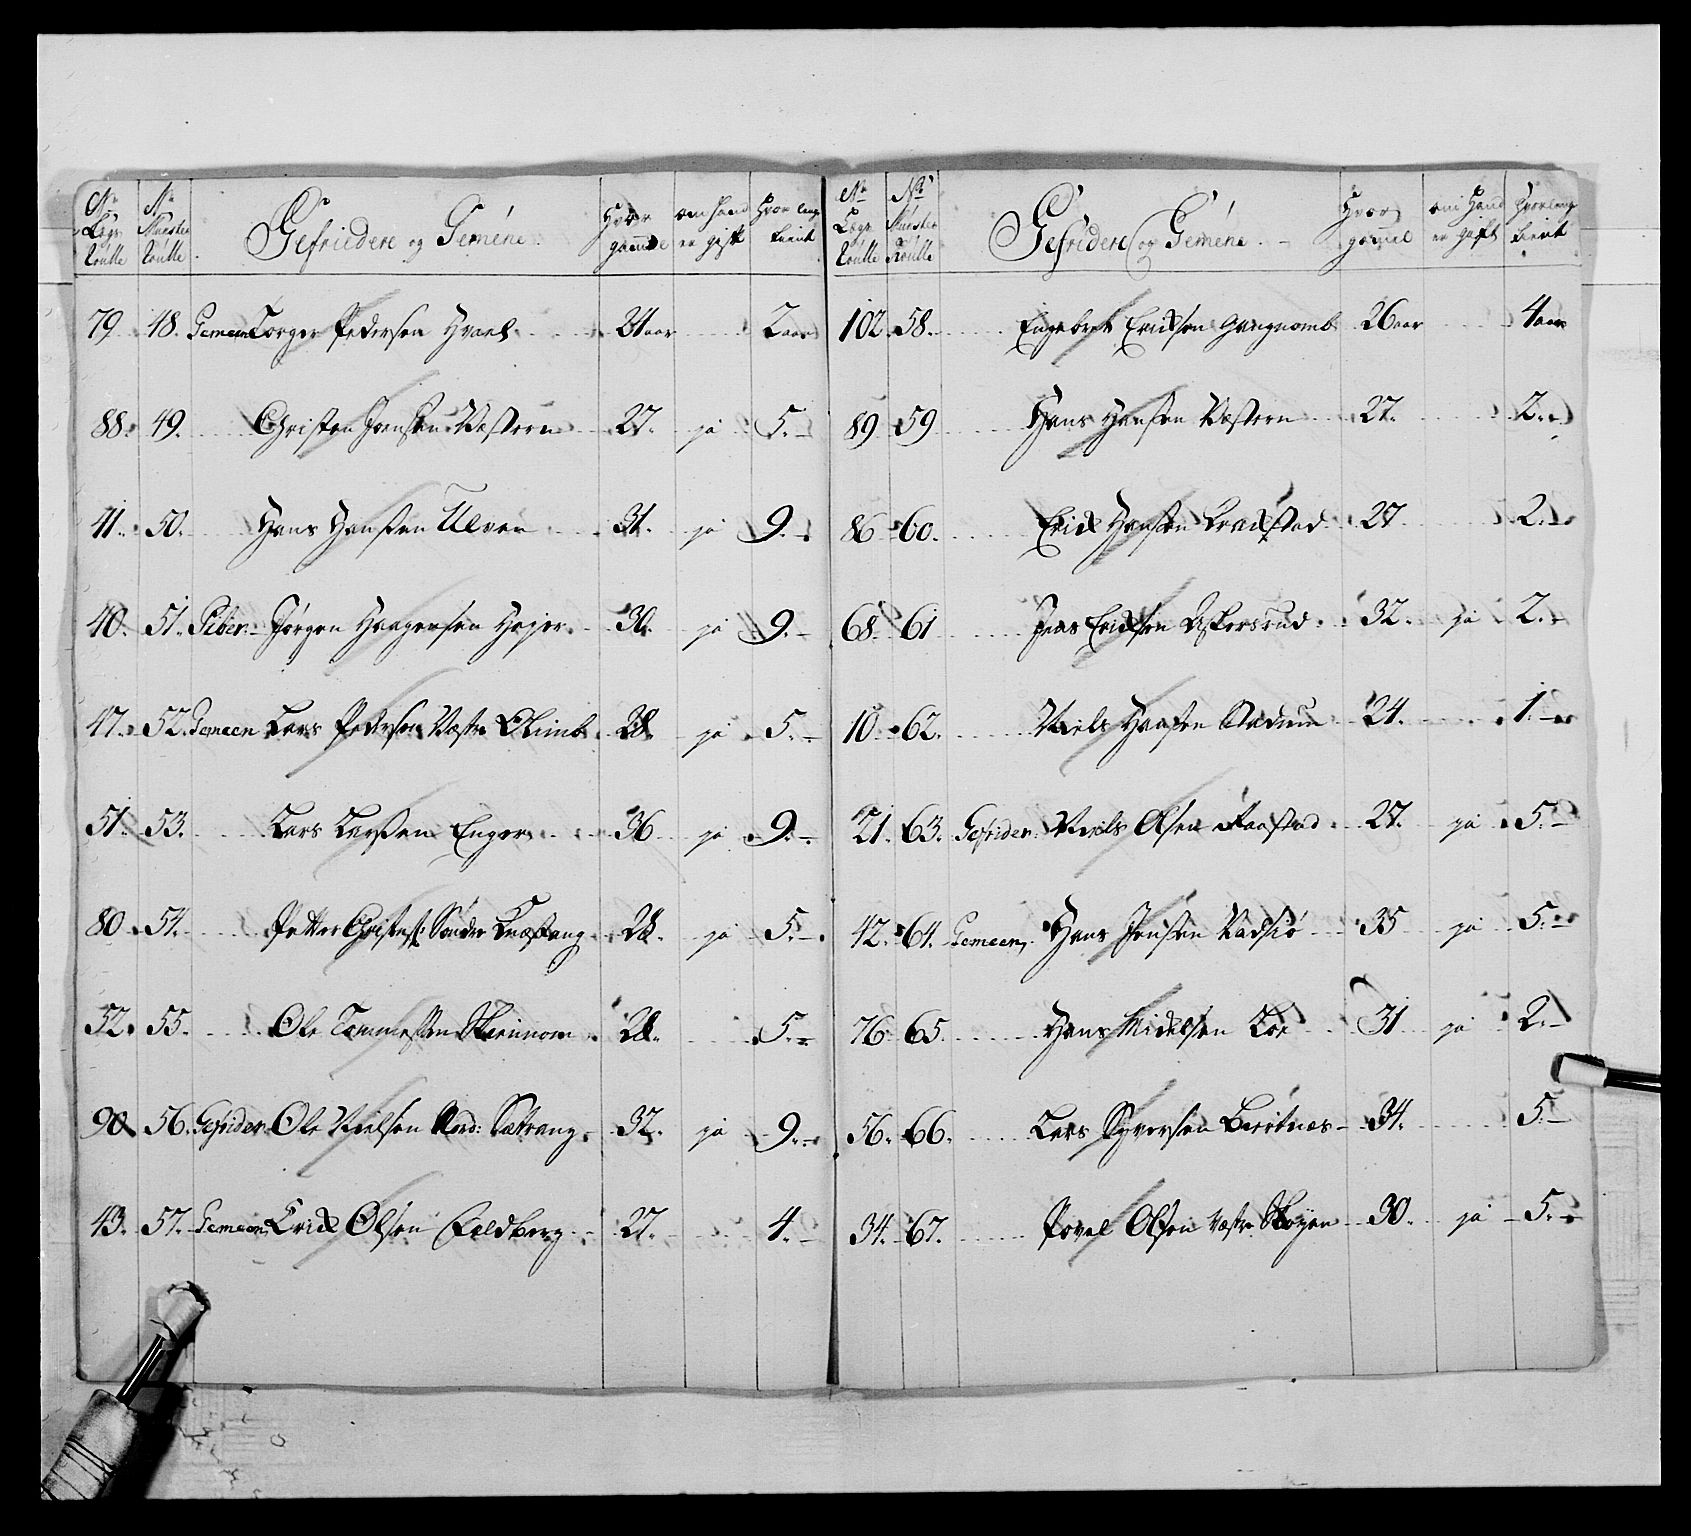 No Lægs Roulle | No Munster Roulle | Gefriedere og Gemene | Hvor gammel | om hand er gift | Hvor leng tient
79 | 48. | Gemeen Torger Pedersen Hvael | 24 aar | | 2 aar
88. | 49. | Christen Jensen Vestern | 27. | ja | 5.
41. | 50. | Hans Hansen Ulven | 31. | ja | 9.
40. | 51. | Piber Jørgen Haagensen Hajer | 30. | ja | 9.
47. | 52. | Gemeen Lars Pedersen Vestre Olimb | 28. | ja | 5.
51. | 53. | Lars Larsen Enger | 36 | ja | 9.
80. | 54. | Petter Christens: Sønder | 28. | ja | 5.
52. | 55. | Ole Tommesen | 28. | | 5.
90. | 56. | Gefrider Ole Nielsen Nord: Sætrang | 32. | ja | 9.
43. | 57. | Gemeen Erich Olsen Feldberg | 27. | | 4.
No Lægs Roulle | No Munster Roulle | Gefridere og Gemene | Hvor gammel | om hand er gift | Hvor leng tient
102. | 58. | Engebret Erichsen | 26 aar | | 4 aar
89 | 59 | Hans Hansen Vestern | 27. | | 2.
86 | 60. | Erich Hansen | 27 | | 2.
68. | 61 | Jens Erichsen Askersrud | 32. | ja | 2.
10. | 62. | Niels Hansen Stadum | 24. | | 1.
21. | 63. | Gefrider Niels Olsen | 27. | ja | 5.
42. | 64. | Gemeen Hans Jensen Vadsiø | 35 | ja | 5.
76. | 65. | Hans Michelsen Loe | 31 | ja | 2.
56. | 66. | Lars Syversen | 34. | | 5.
34. | 67. | Povel Olsen Vestre Skøyen | 30. | ja | 5.